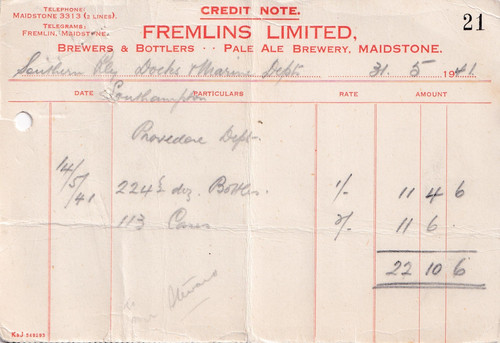 TELEPHONE:
MAIDSTONE 3313 (2 LINES).
TELEGRAMS:
FREMLIN, MAIDSTONE.
CREDIT NOTE.
21
FREMLINS LIMITED,
BREWERS & BOTTLERS · · PALE ALE BREWERY, MAIDSTONE.
Southern Rly Docks & Marine Dept. 31. 5 1941.
Southampton
DATE PARTICULARS RATE AMOUNT
Provedore Dept.
14/5/41 224½ doz. Bottles. 1/- 11 4 6
113 Cases 2/- 11 6
22 10 6